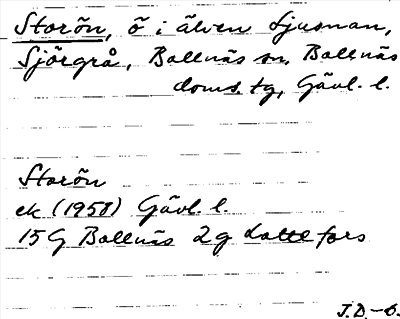 Storön, ö i älven Ljusnan,
Sjörgrå, Bollnäs sn, Bollnäs
doms. tg, Gävl. l.
Storön
ek (1958) Gävl. l.
15 G Bollnäs 2 g Lottefors
J.D.-ö.